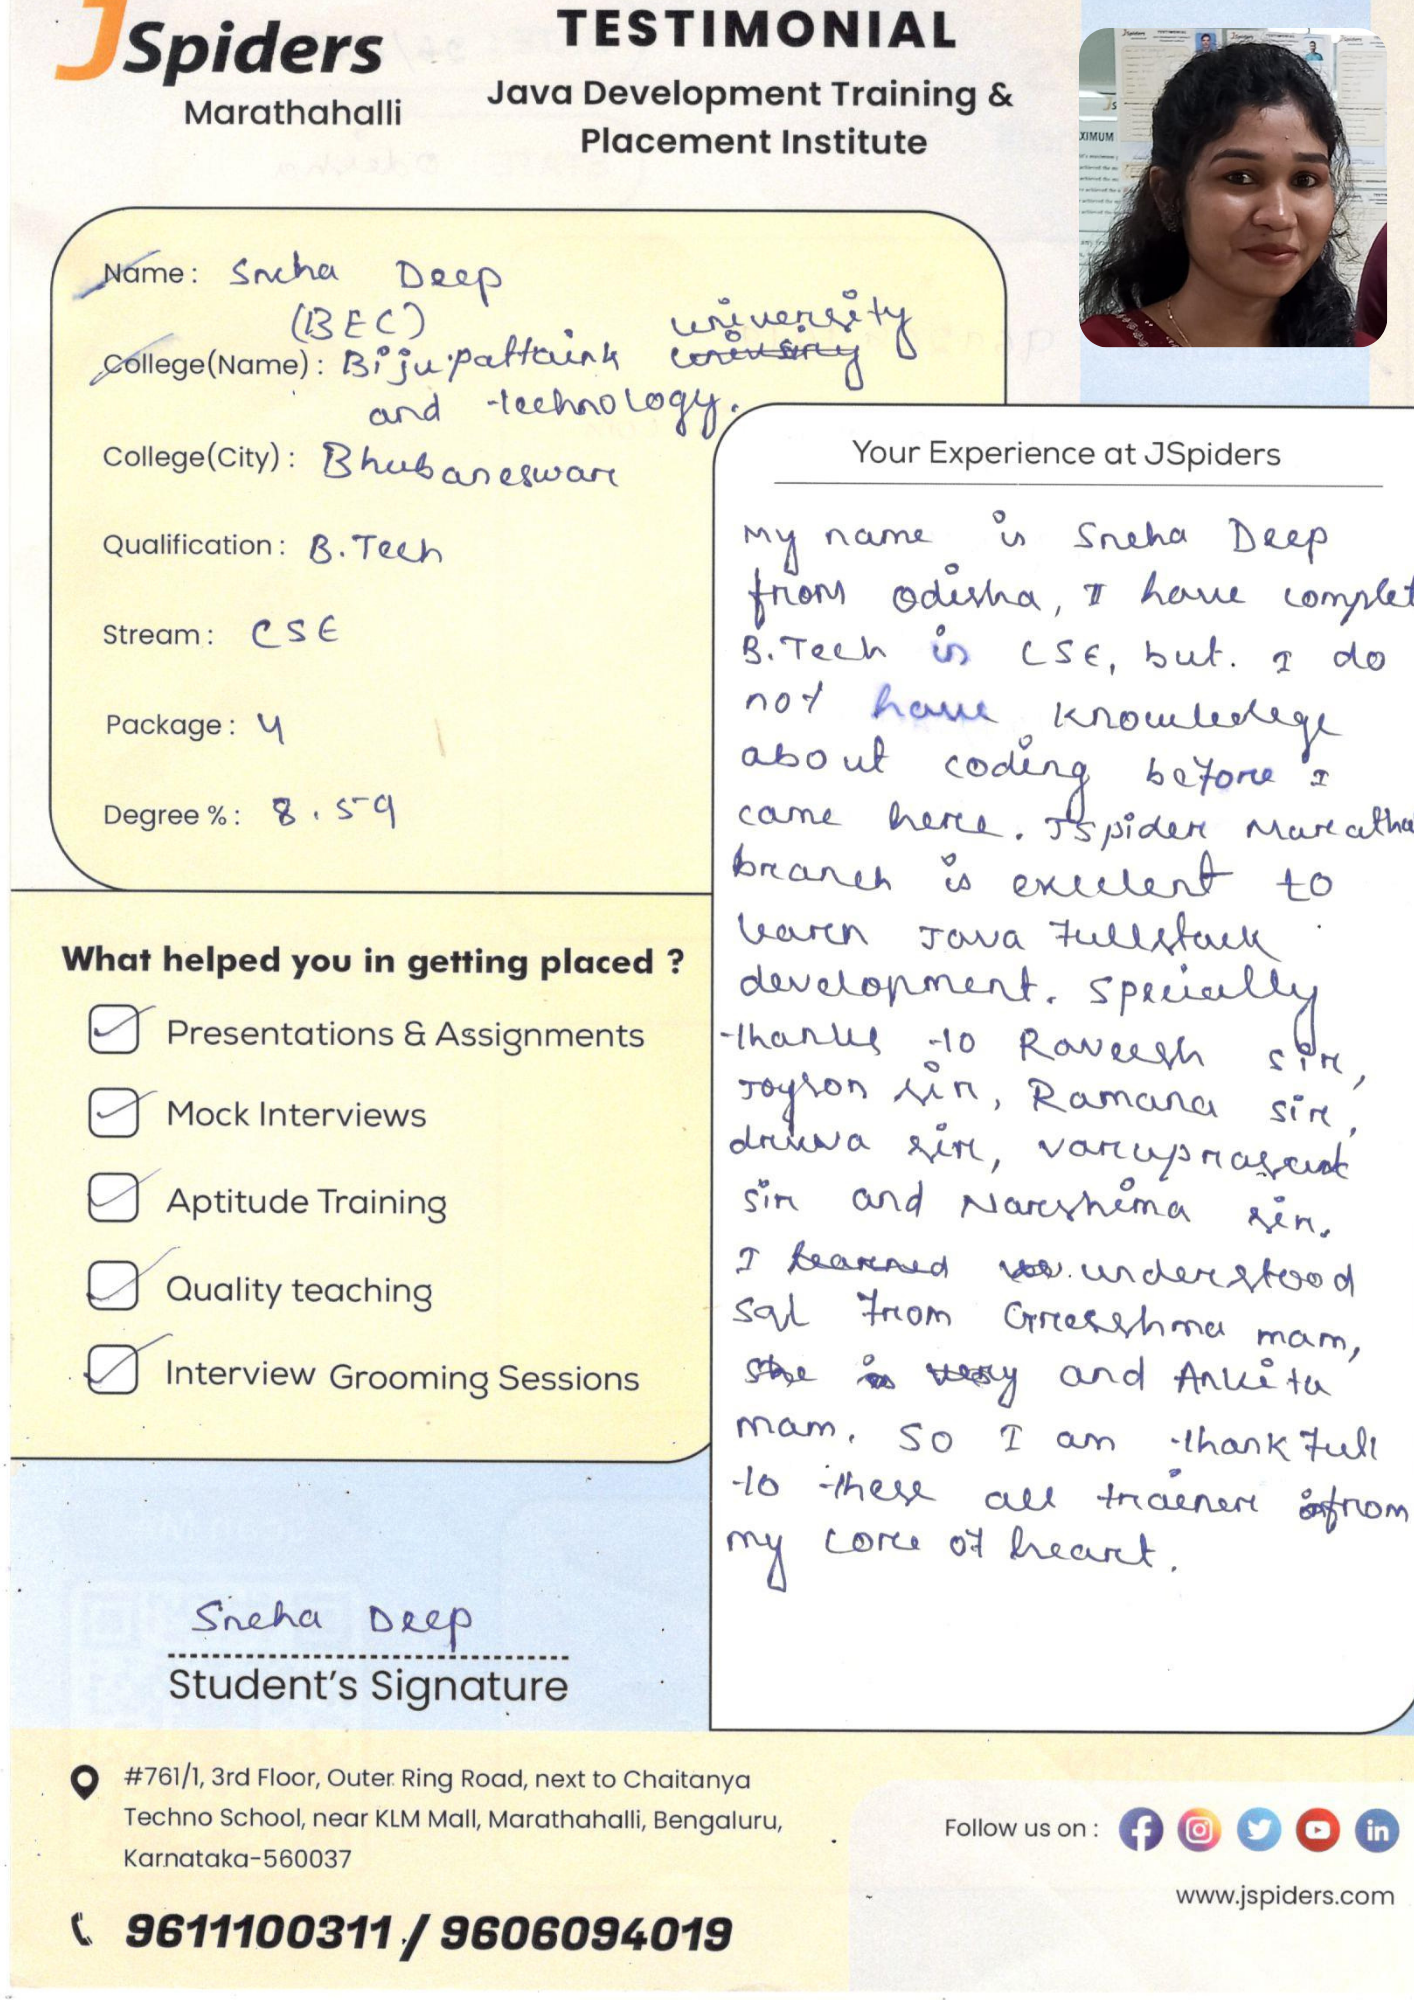 JSpiders
Marathahalli
TESTIMONIAL
Java Development Training &
Placement Institute
XIMUM
Name : Sneha Deep
(BEC) university
College(Name) : Biju pattaink
and technology.
College(City) : Bhubaneswar
Qualification : B.Tech
Stream : CSE
Package : 4
Degree % : 8.59
What helped you in getting placed ?
Presentations & Assignments
Mock Interviews
Aptitude Training
Quality teaching
Interview Grooming Sessions
Sneha Deep
Student's Signature
Your Experience at JSpiders
My name is Sneha Deep
from odisha, I have complet
B.Tech in CSE, but. I do
not have knowledege
about coding before I
came here. JSpider Maratha
branch is excelent to
learn Java Fullstack
development. Specially
thanks to Raveesh sir,
Joyson sir, Ramana sir,
druva sir, 
sir and Narshima sir.
I learned understood
sql from Greeshma mam,
she is very and Ankita
mam. So I am thankfull
to these all trainer from
my core of heart.
#761/1, 3rd Floor, Outer Ring Road, next to Chaitanya
Techno School, near KLM Mall, Marathahalli, Bengaluru,
Karnataka-560037
9611100311 / 9606094019
Follow us on :
www.jspiders.com